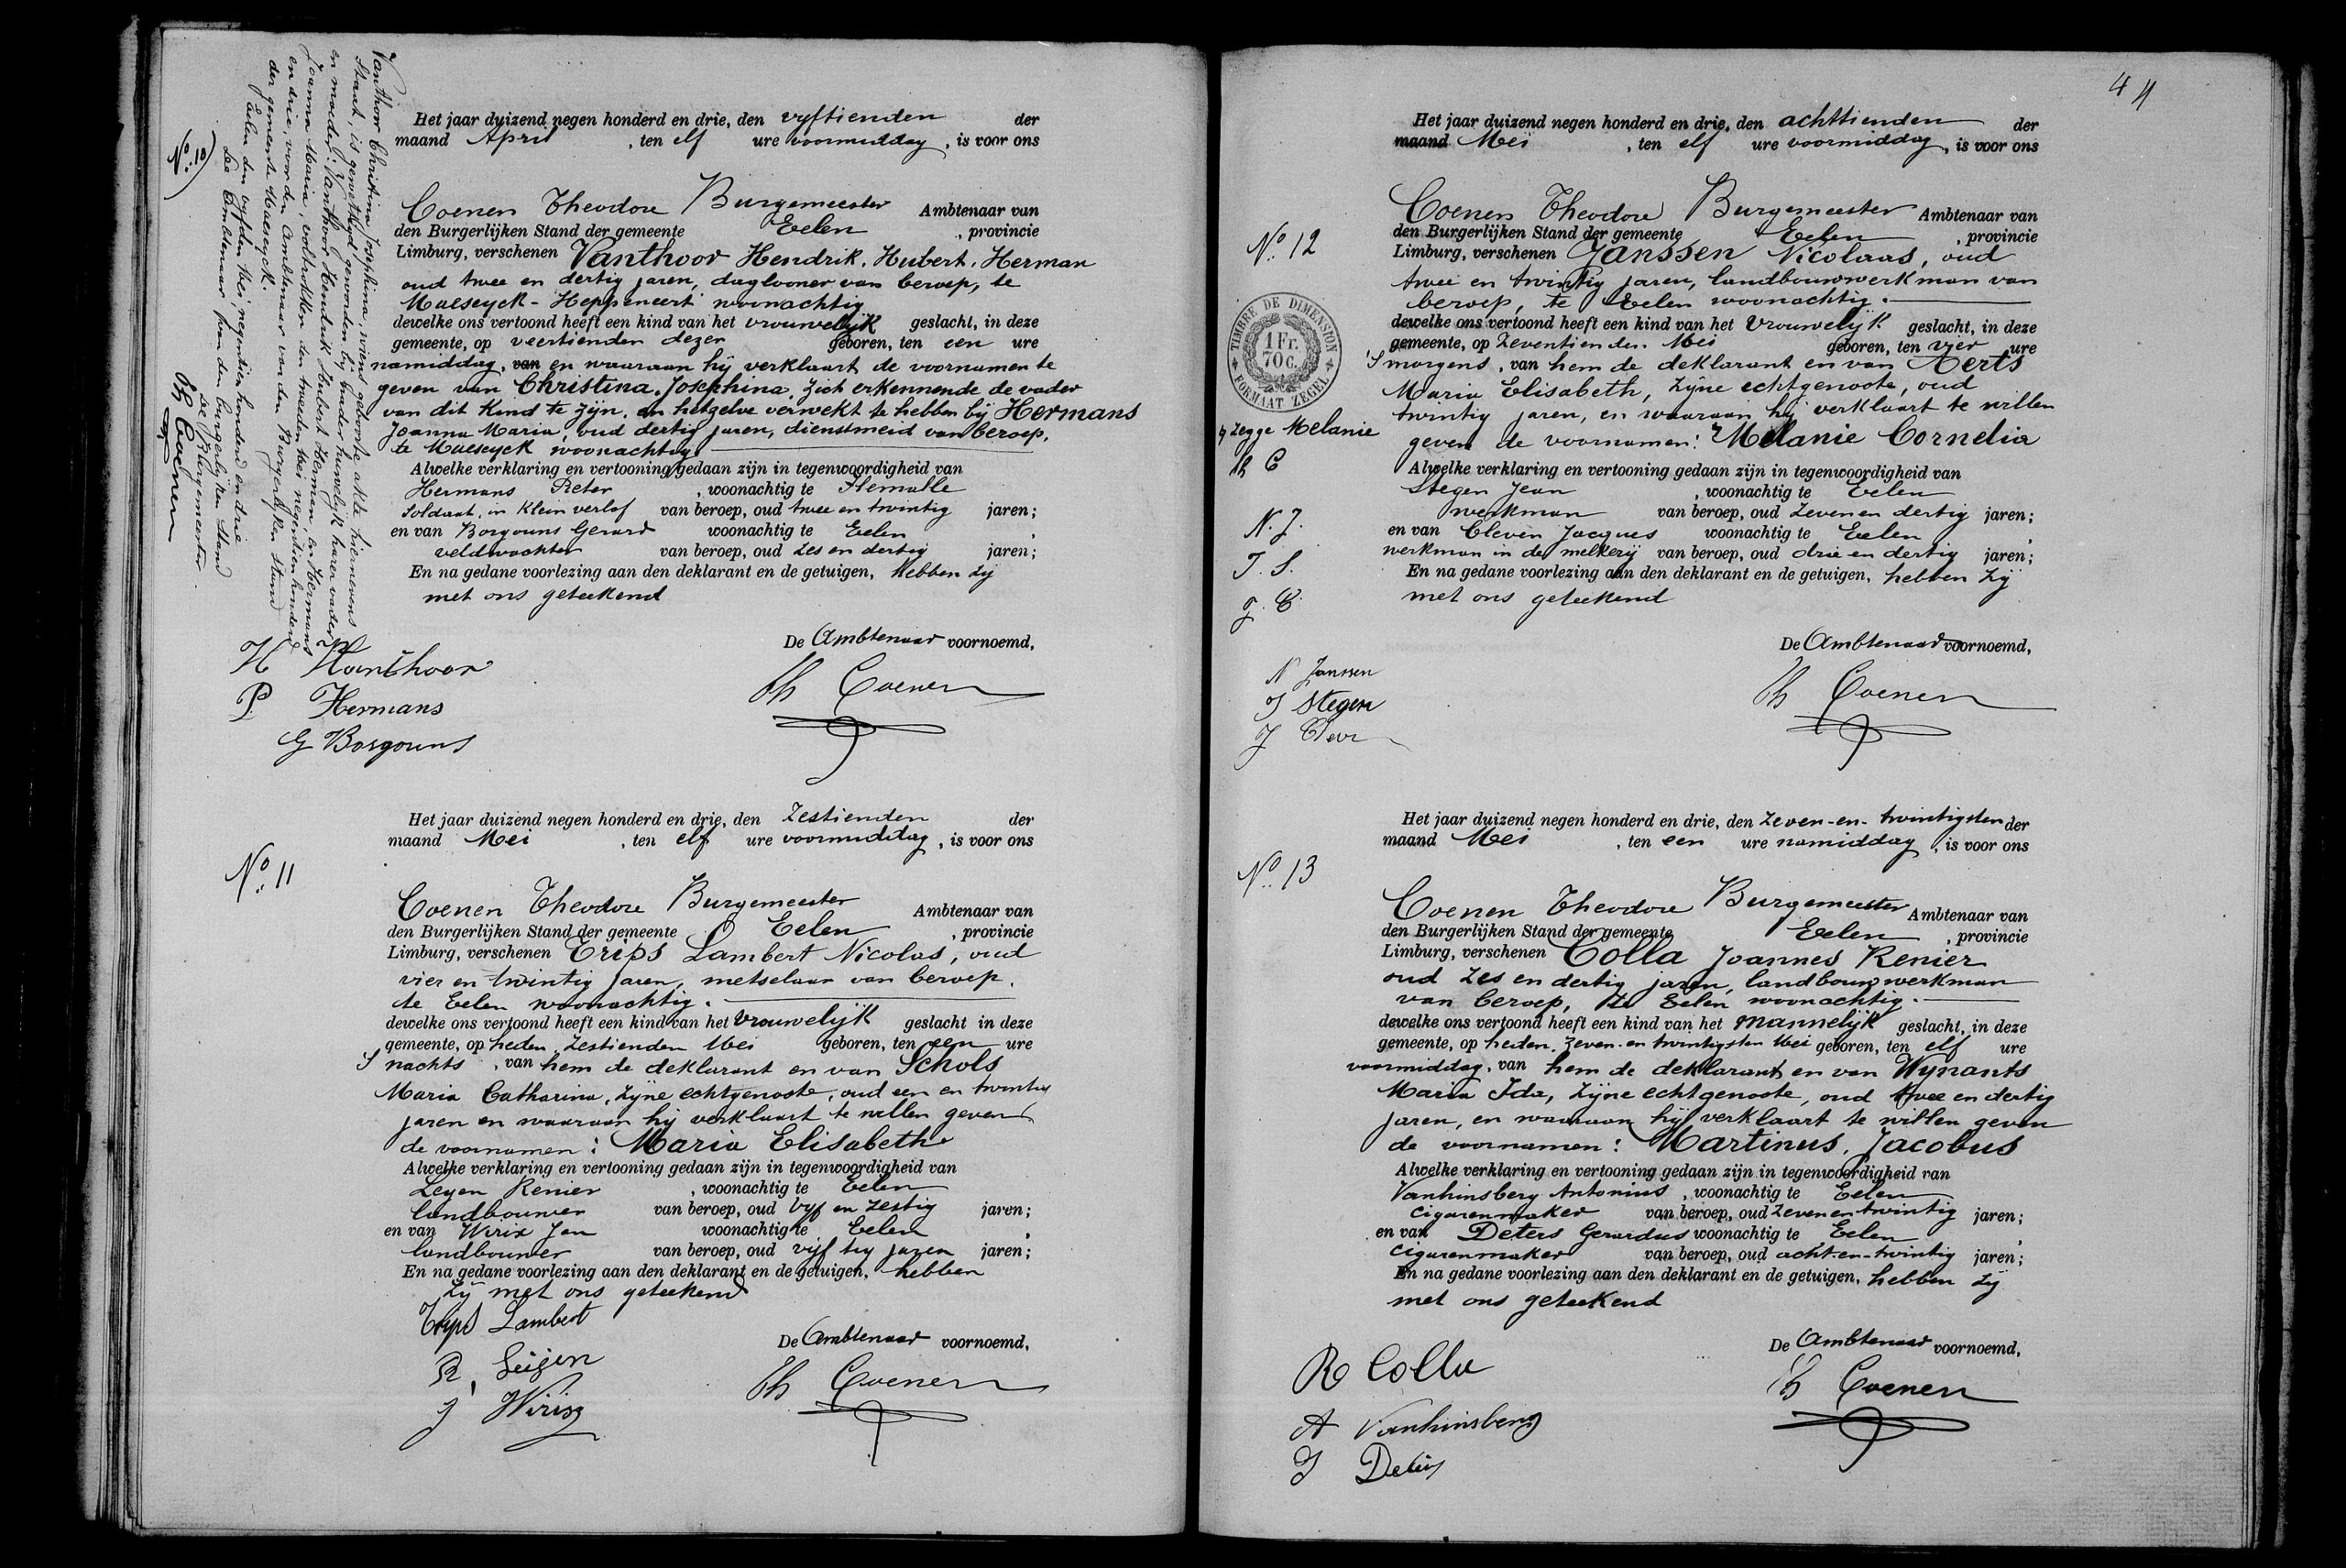 Vanthoor Christina Josephina, wiens geboorte akte hiernevens
staat, is gewettigd geworden by onder huwelijk harer vader
en moeder: Vanthoor Hendrik Hubert Herman en Hermans
Joanna Maria, voltrokken den tweeden Mei negentien honderd
en drie, voor den Ambtenaar van den Burgerlijken Stand
der gemeente Maeseyck.
Eelen den vyfden Mei, negentien honderd en drie
De Ambtenaar van den burgerlijken Stand
De Burgemeester
Th Coenen
No: 10)
Het jaar duizend negen honderd en drie, den vyftienden der
maand April , ten elf ure voormiddag , is voor ons
Coenen Theodore Burgemeester Ambtenaar van
den Burgerlijken Stand der gemeente Eelen , provincie
Limburg, verschenen Vanthoor Hendrik, Hubert, Herman
oud twee en dertig jaren, daglooner van beroep, te
Maeseyck - Heppeneert woonachtig
dewelke ons vertoond heeft een kind van het vrouwelijk geslacht, in deze
gemeente, op veertienden dezer geboren, ten een ure
namiddag, van en waaraan hij verklaart de voornamen te
geven van Christina, Josephina, zich erkennende de vader
van dit kind te zijn, en hetgelve verwekt te hebben bij Hermans
Joanna Maria, oud dertig jaren, dienstmeid van beroep,
te Maeseyck woonachtig
Alwelke verklaring en vertooning gedaan zijn in tegenwoordigheid van
Hermans Peter , woonachtig te Flemalle
Soldaat, in Klein verlof van beroep, oud twee en twintig jaren;
en van Borgouns Gerard woonachtig te Eelen ,
veldwachter van beroep, oud zes en dertig jaren;
En na gedane voorlezing aan den deklarant en de getuigen, hebben zij
met ons geteekend
De Ambtenaar voornoemd,
H Vanthoor
P. Hermans
G Borgouns
Th Coenen
No: 11
Het jaar duizend negen honderd en drie, den zestienden der
maand Mei , ten elf ure voormiddag , is voor ons
Coenen Theodore Burgemeester Ambtenaar van
den Burgerlijken Stand der gemeente Eelen , provincie
Limburg, verschenen Trips Lambert Nicolas, oud
vier en twintig jaren, metselaar van beroep,
te Eelen woonachtig.
dewelke ons vertoond heeft een kind van het vrouwelijk geslacht in deze
gemeente, op heden, zestienden Mei geboren, ten een ure
S nachts , van hem de deklarant en van Schols
Maria Catharina, zijne echtgenoote, oud een en twintig
jaren en waaraan hij verklaart te willen geven
de voornamen: Maria Elisabeth
Alwelke verklaring en vertooning gedaan zijn in tegenwoordigheid van
Leyen Renier , woonachtig te Eelen
landbouwer van beroep, oud vyf en zestig jaren;
en van Wirix Jan woonachtig te Eelen ,
landbouwer van beroep, oud vijftig jaren jaren;
En na gedane voorlezing aan den deklarant en de getuigen, hebben
zij met ons geteekend
Trips Lambert
De Ambtenaar voornoemd,
R. Leijen
J Wirix
Th Coenen
44
No: 12
Het jaar duizend negen honderd en drie, den achttienden der
maand Mei , ten elf ure voormiddag , is voor ons
Coenen Theodore Burgemeester Ambtenaar van
den Burgerlijken Stand der gemeente Eelen , provincie
Limburg, verschenen Janssen Nicolaas, oud
twee en twintig jaren, landbouwwerkman van
beroep, te Eelen woonachtig.
dewelke ons vertoond heeft een kind van het vrouwelijk geslacht, in deze
gemeente, op zeventienden Mei geboren, ten vier ure
'S morgens , van hem de deklarant en van Aerts
Maria Elisabeth, zijne echtgenoote, oud
twintig jaren, en waaraan hij verklaart te willen
geven de voornamen: Melanie Cornelia
TIMBRE DE DIMENSION
1 Fr.
70 c.
FORMAAT ZEGEL
zegge Melanie
Th C
N. J.
J. S.
J. C.
Alwelke verklaring en vertooning gedaan zijn in tegenwoordigheid van
Stegen Jean , woonachtig te Eelen
werkman van beroep, oud zeven en dertig jaren;
en van Cleven Jacques woonachtig te Eelen ,
werkman in de melkerij van beroep, oud drie en dertig jaren;
En na gedane voorlezing aan den deklarant en de getuigen, hebben zij
met ons geteekend
De Ambtenaar voornoemd,
N Janssen
J Stegen
J Cleven
Th Coenen
No: 13
Het jaar duizend negen honderd en drie, den zeven-en-twintigsten der
maand Mei , ten een ure namiddag , is voor ons
Coenen Theodore Burgemeester Ambtenaar van
den Burgerlijken Stand der gemeente Eelen , provincie
Limburg, verschenen Colla Joannes Renier
oud zes en dertig jaren, landbouwwerkman
van beroep, te Eelen woonachtig.
dewelke ons vertoond heeft een kind van het mannelijk geslacht, in deze
gemeente, op heden, zeven-en twintigsten Mei geboren, ten elf ure
voormiddag, van hem de deklarant en van Wynants
Maria Ida, zijne echtgenoote, oud twee en dertig
jaren, en waaraan hij verklaart te willen geven
de voornamen: Martinus, Jacobus
Alwelke verklaring en vertooning gedaan zijn in tegenwoordigheid van
Vanhinsberg Antonius , woonachtig te Eelen
cigarenmaker van beroep, oud zeven en twintig jaren;
en van Deters Gerardus woonachtig te Eelen ,
cigarenmaker van beroep, oud acht-en-twintig jaren;
En na gedane voorlezing aan den deklarant en de getuigen, hebben zij
met ons geteekend
De Ambtenaar voornoemd,
R Colla
A Vanhinsberg
Th Coenen